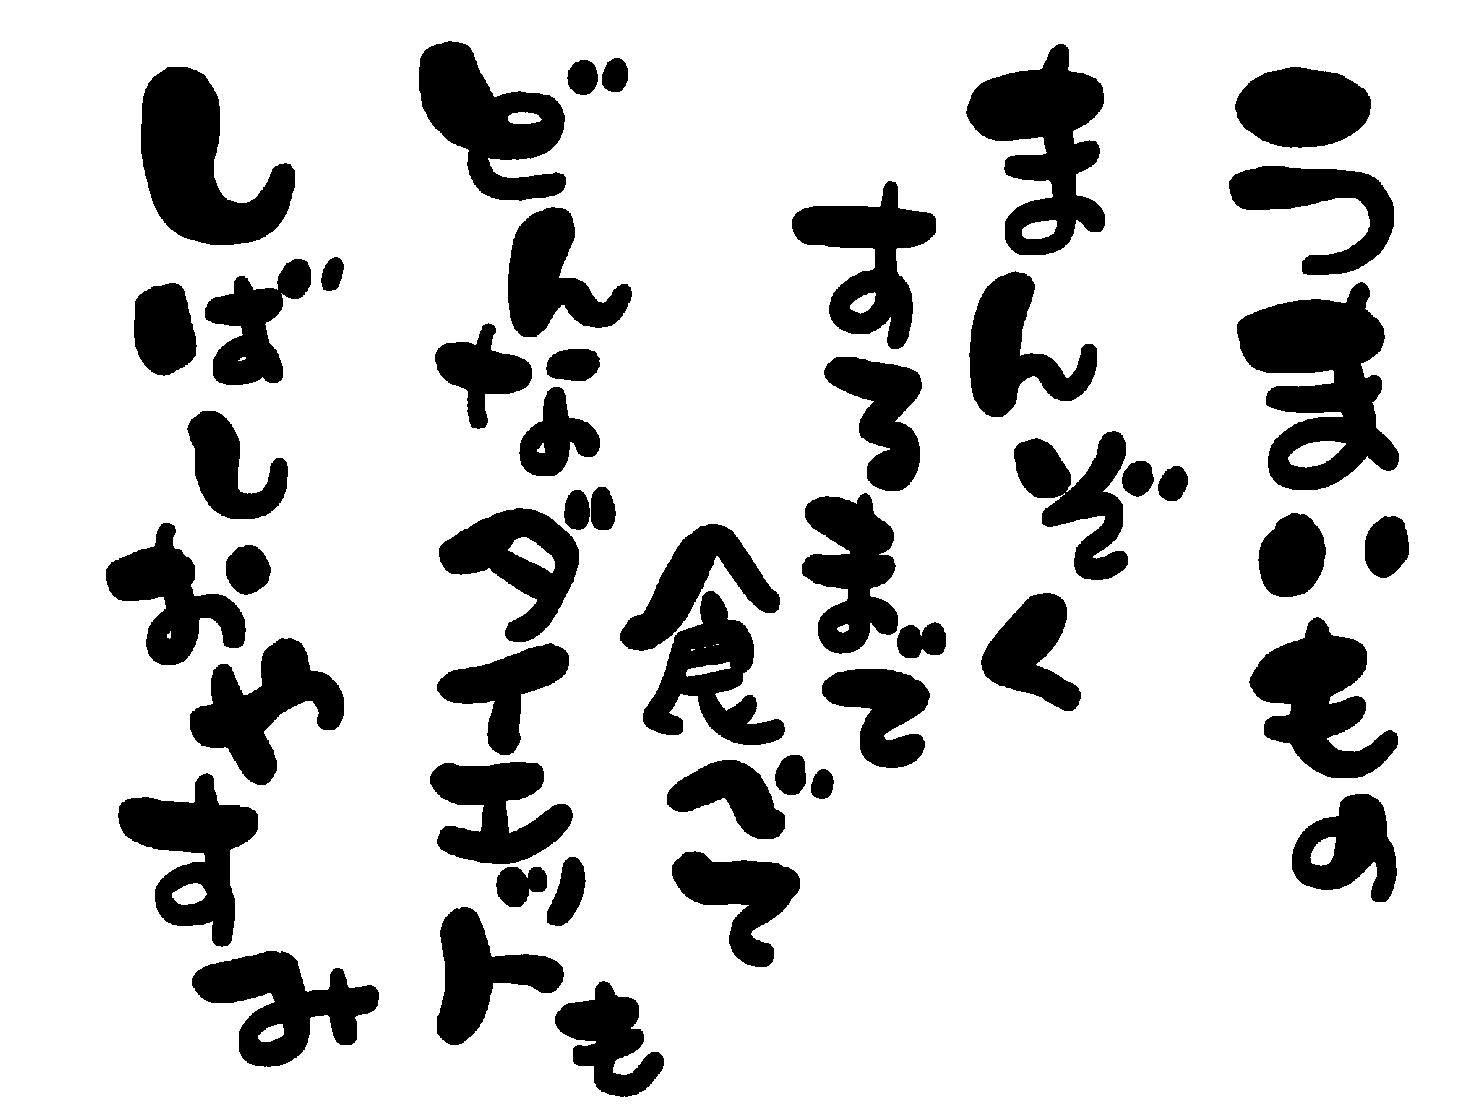 うまいもの
まんぞく
するまで
食べて
どんなダイエットも
しばしおやすみ